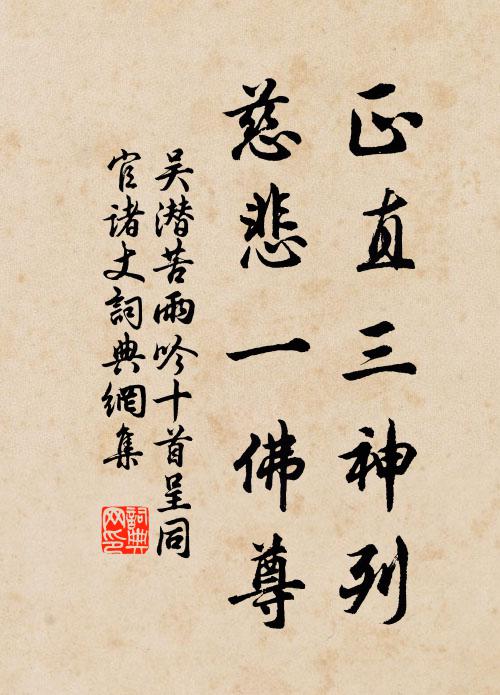 正直三神列
慈悲一佛尊
吴潜苦雨吟十首呈同
官诸丈詞典網集
詞典
网印